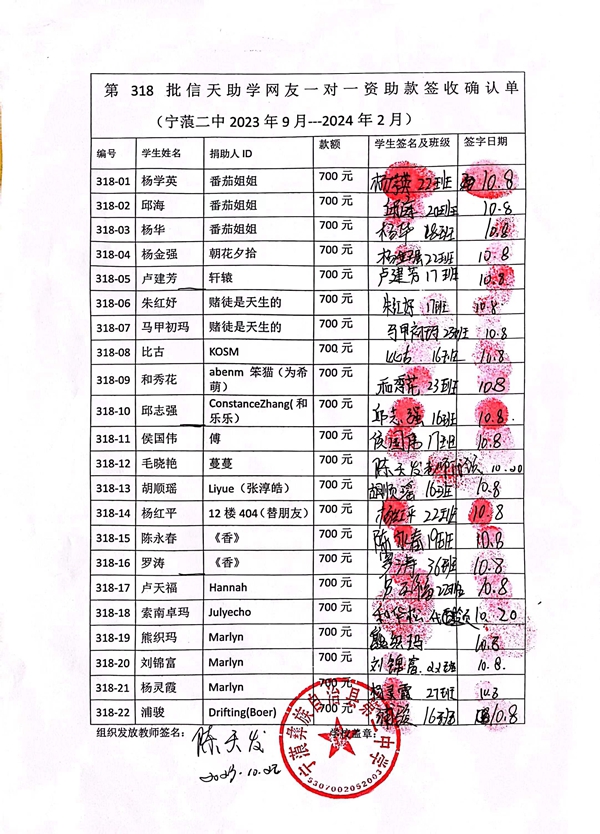 第 318 批信天助学网友一对一资助款签收确认单
（宁蒗二中 2023 年 9 月---2024 年 2 月）
编号 学生姓名 捐助人 ID 款额 学生签名及班级 签字日期
318-01 杨学英 番茄姐姐 700 元 杨学英 22班 10.8
318-02 邱海 番茄姐姐 700 元 邱海 20班 10.8
318-03 杨华 番茄姐姐 700 元 杨华 18班 10.8
318-04 杨金强 朝花夕拾 700 元 杨金强 22班 10.8
318-05 卢建芳 轩辕 700 元 卢建芳 17班 10.8
318-06 朱红好 赌徒是天生的 700 元 朱红好 17班 10.8
318-07 马甲初玛 赌徒是天生的 700 元 马甲初玛 23班 10.8
318-08 比古 KOSM 700 元 比古 16班 10.8
318-09 和秀花 abenm 笨猫（为希
萌） 700 元 和秀花 23班 10.8
318-10 邱志强 ConstanceZhang( 和
乐乐） 700 元 邱志强 16班 10.8
318-11 侯国伟 傅 700 元 侯国伟 17班 10.8
318-12 毛晓艳 蔓蔓 700 元 陈天发 10.20
318-13 胡顺瑶 Liyue（张淳皓） 700 元 胡顺瑶 16班 10.8
318-14 杨红平 12 楼 404（替朋友） 700 元 杨红平 22班 10.8
318-15 陈永春 《香》 700 元 陈永春 19班 10.8
318-16 罗涛 《香》 700 元 罗涛 36班 10.8
318-17 卢天福 Hannah 700 元 卢天福 22班 10.8
318-18 索南卓玛 Julyecho 700 元 和华松 10.20
318-19 熊织玛 Marlyn 700 元 熊织玛 10.8
318-20 刘锦富 Marlyn 700 元 刘锦富 22班 10.8
318-21 杨灵霞 Marlyn 700 元 杨灵霞 27班
318-22 浦骏 Drifting(Boer) 700 元 浦骏 16班 10.8
组织发放教师签名： 陈天发 学校盖章：
2023.10.22
宁蒗彝族自治县第二中学
5307002052003